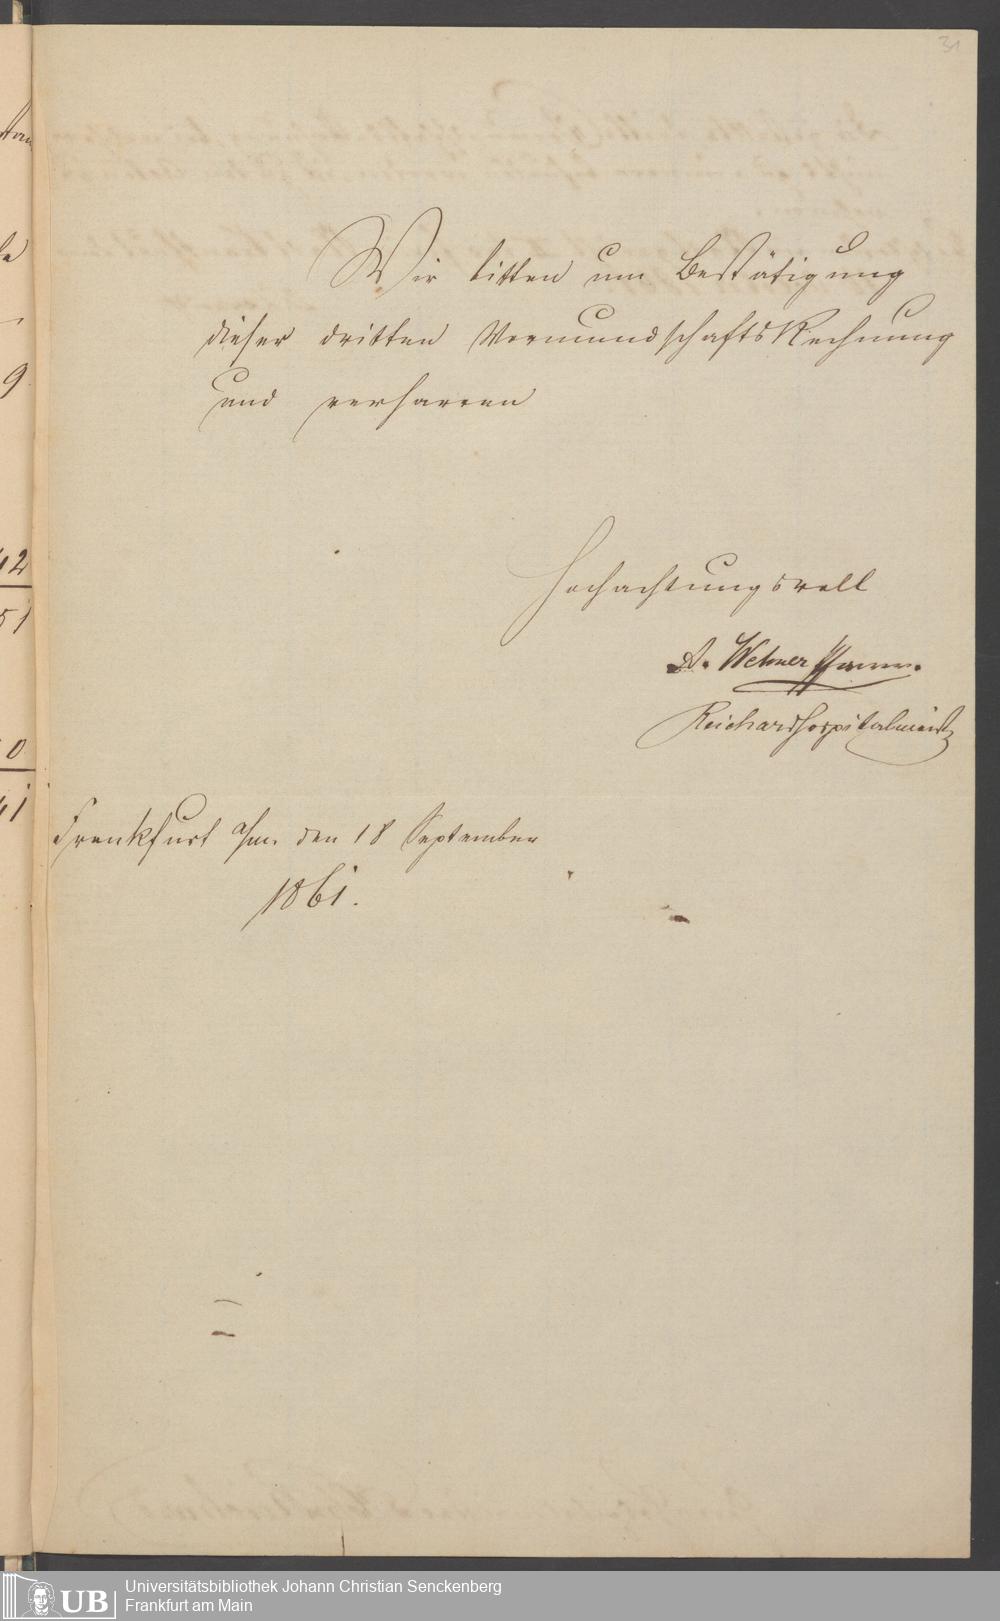 31
Wir bitten um Bestätigung
dieser dritten Vormundschafts Rechnung
und verharren
Hochachtungsvoll
Reichard Hospitalmeister
Frankfurt a/m. den 18 September
1861.
42
51
0
41
9
UB
Universitätsbibliothek Johann Christian Senckenberg
Frankfurt am Main